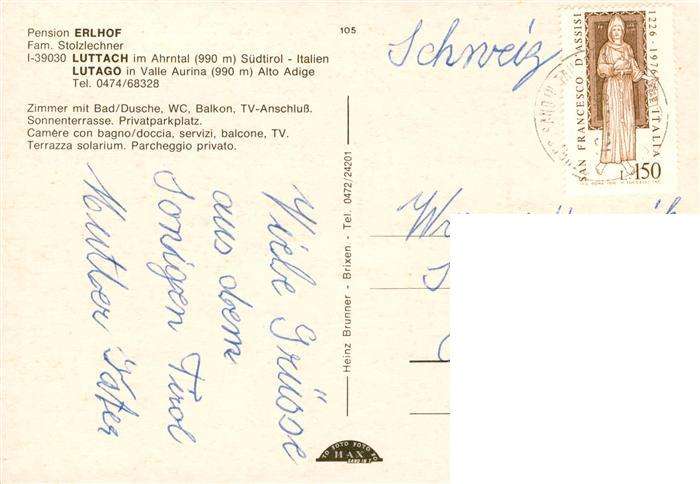 Pension ERLHOF
Fam. Stolzlechner
I-39030 LUTTACH im Ahrntal (990 m) Südtirol - Italien
LUTAGO in Valle Aurina (990 m) Alto Adige
Tel. 0474/68328
Zimmer mit Bad/Dusche, WC, Balkon, TV-Anschluß.
Sonnenterrasse. Privatparkplatz.
Camère con bagno/doccia, servizi, balcone, TV.
Terrazza solarium. Parcheggio privato.
Viele Grüsse
aus dem
sonigen Tirol
Mutter Vater
105
Heinz Brunner - Brixen - Tel. 0472/24201
FOTO FOTO FOTO
MAX
Schweiz
SAN FRANCESCO D'ASSISI
1226-1976
ITALIA
L.150